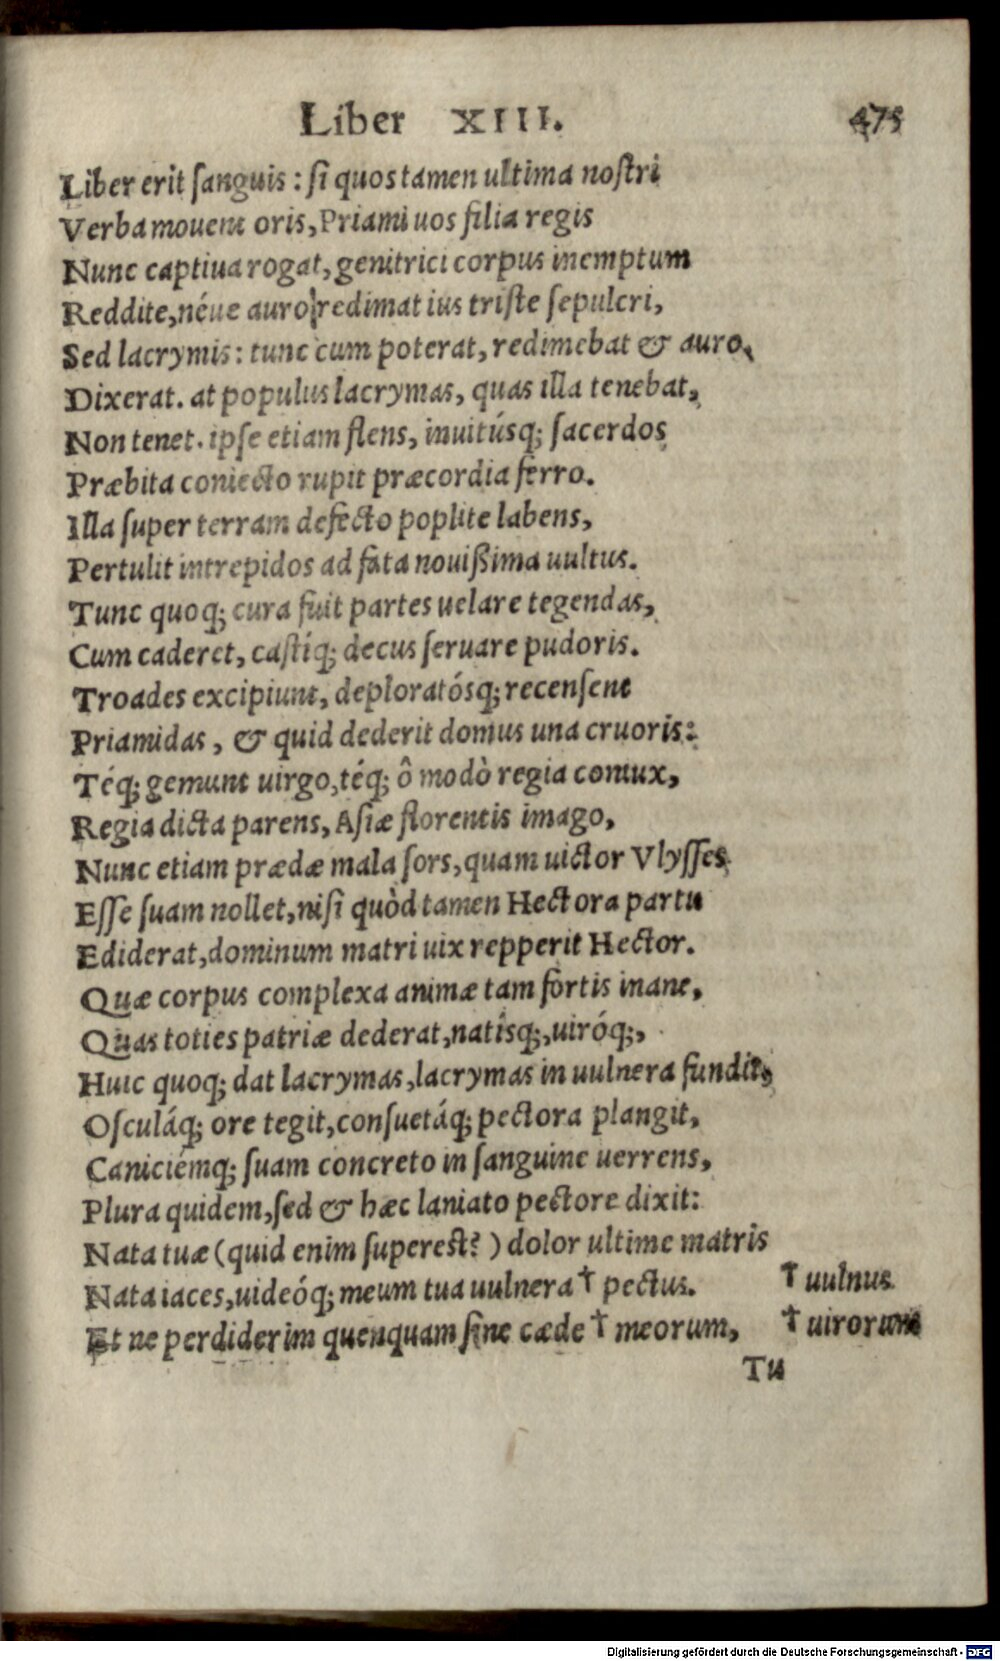 Liber XIII. 475
Liber erit ſanguis : ſi quos tamen ultima noſtri
Verba mouent oris, Priami uos filia regis
Nunc captiua rogat, genitrici corpus inemptum
Reddite, néue auro redimat ius triſte ſepulcri,
Sed lacrymis: tunc cum poterat, redimebat & auro,
Dixerat. at populus lacrymas, quas illa tenebat,
Non tenet. ipſe etiam flens, inuitúsq; ſacerdos
Præbita coniecto rupit præcordia ferro.
Illa ſuper terram defecto poplite labens,
Pertulit intrepidos ad fata nouißima uultus.
Tunc quoq; cura fuit partes uelare tegendas,
Cum caderet, caſtíq; decus ſeruare pudoris.
Troades excipiunt, deploratósq; recenſent
Priamidas, & quid dederit domus una cruoris:
Téq; gemunt uirgo, téq; ô modò regia coniux,
Regia dicta parens, Aſiæ florentis imago,
Nunc etiam prædæ mala ſors, quam uictor Vlyſſes
Eſſe ſuam nollet, niſi quòd tamen Hectora partu
Ediderat, dominum matri uix repperit Hector.
Quæ corpus complexa animæ tam fortis inane,
Quas toties patriæ dederat, natísq;, uiróq;,
Huic quoq; dat lacrymas, lacrymas in uulnera fundit,
Oſculáq; ore tegit, conſuetáq; pectora plangit,
Caniciémq; ſuam concreto in ſanguine uerrens,
Plura quidem, ſed & hæc laniato pectore dixit:
Nata tuæ (quid enim ſupereſt? ) dolor ultime matris
Nata iaces, uideóq; meum tua uulnera † pectus. † uulnus
Et ne perdiderim quenquam ſine cæde † meorum, † uirorum
Tu
Digitalisierung gefördert durch die Deutsche Forschungsgemeinschaft - DFG